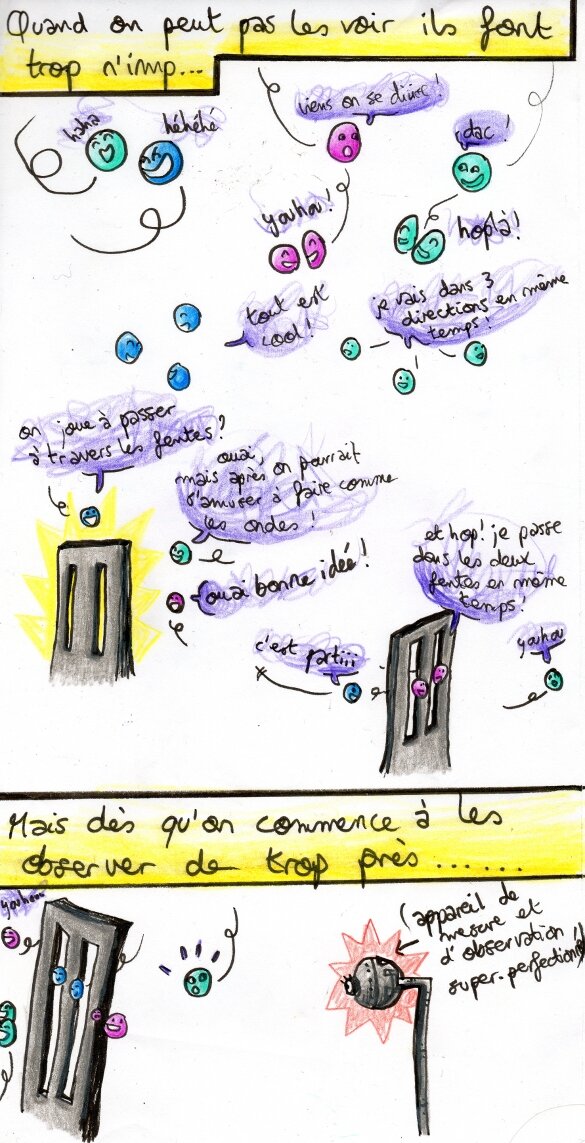 Quand on peut pas les voir ils font
trop n'imp...
haha
héhéhé
tiens on se divise !
dac !
youhou !
hop là !
tout est
cool !
je vais dans 3
directions en même
temps !
on joue à passer
à travers les fentes ?
ouai,
mais après on pourrait
s'amuser à faire comme
les ondes !
ouai bonne idée !
et hop ! je passe
dans les deux
fentes en même
temps !
c'est partiii
youhou
Mais dès qu'on commence à les
observer de trop près......
youhou
(appareil de
mesure et
d'observation
super-perfectionné)